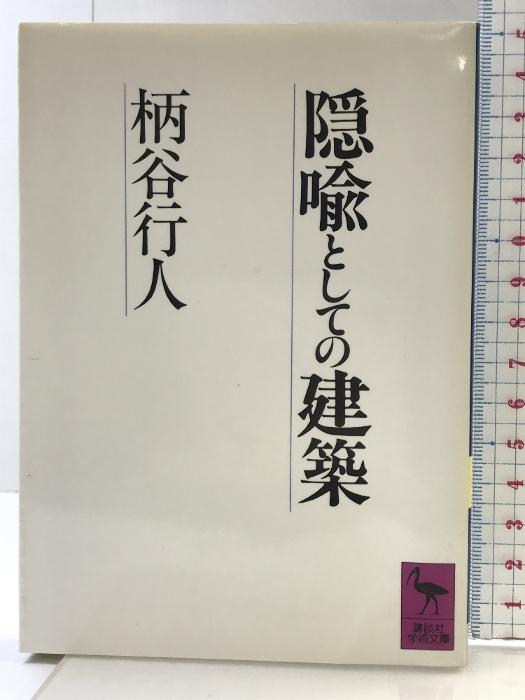 隠喩としての建築
柄谷行人
講談社
学術文庫
1 2 3 4 5 6 7 8 9 0 1 2 3 4 5